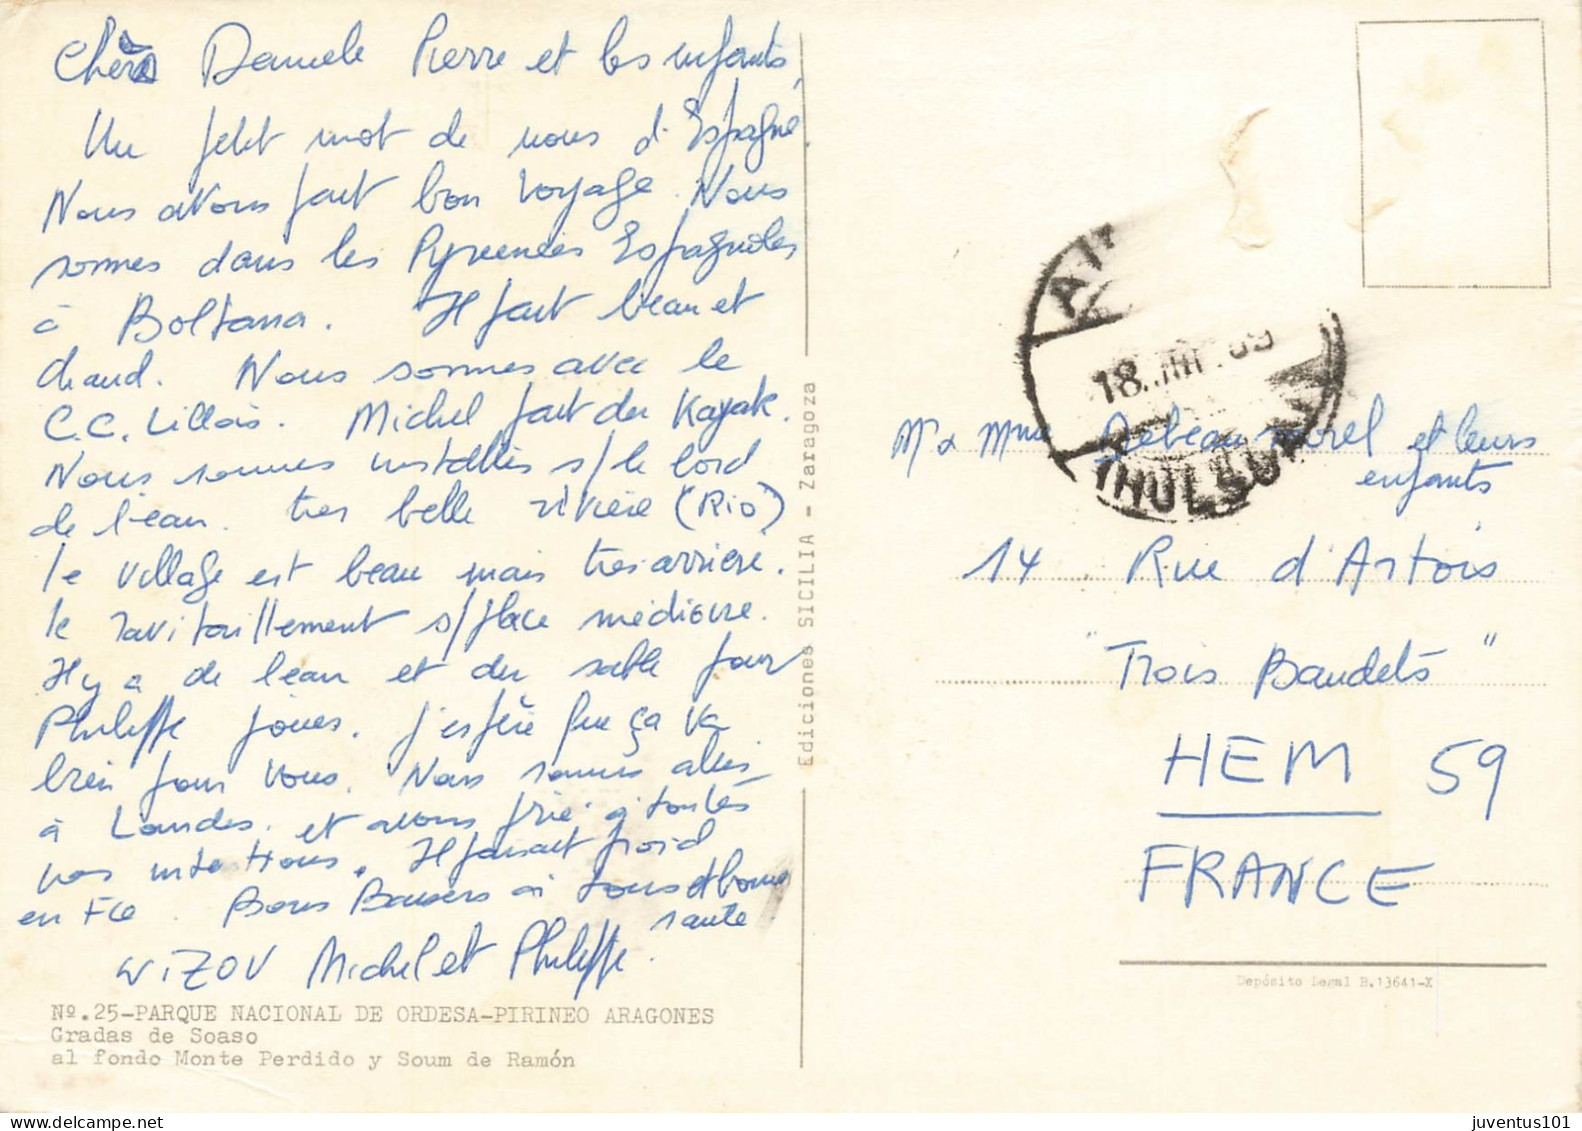 Chers Daniele Pierre et les enfants,
Un petit mot de nous d'Espagne.
Nous avons fait bon voyage. Nous
sommes dans les Pyrenées Espagnoles
à Boltana. Il fait beau et
chaud. Nous sommes avec le
C.C. Lillois. Michel fait du Kayak.
Nous sommes installés s/ le bord
de l'eau. très belle rivière (Rio)
le village est beau mais tres arriéré.
le ravitaillement s/ place médiocre.
Il y a de l'eau et du sable pour
Philippe jouer. J'espère que ça va
bien pour vous. Nous sommes allés
à Lourdes. et avons prié à toutes
vos intentions. Il faisait froid
en Fce. Bons Baisers à tous et bonne
santé.
Michel et Philippe.
Nº.25-PARQUE NACIONAL DE ORDESA-PIRINEO ARAGONES
Gradas de Soaso
al fondo Monte Perdido y Soum de Ramón
Ediciones SICILIA - Zaragoza
18.
Mr & Mme et leurs
enfants
14 Rue d'Artois
"Trois Baudets"
HEM 59
FRANCE
Depósito Legal B.13641-X
juventus101